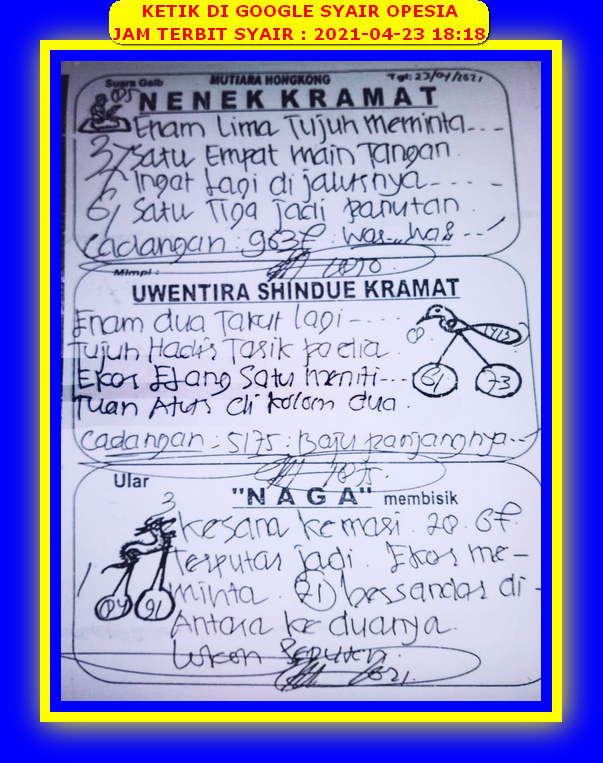 KETIK DI GOOGLE SYAIR OPESIA
JAM TERBIT SYAIR : 2021-04-23 18:18
Suara Gaib MUTIARA HONGKONG Tgl: 23/04/2021
NENEK KRAMAT
Enam Lima Tujuh meminta...
37 Satu Empat main Tangan.
Ingat Lagi di jalurnya....
61 Satu Tiga jadi panutan.
Cadangan : 9637 : was-was...
Mimpi :
UWENTIRA SHINDUE KRAMAT
Enam dua Takut lagi....
Tujuh Hadis Tasik padia.
Ekor Elang Satu meniti...
Tuan Atur di kolom dua.
61 73
Cadangan : 5175 : Baju panjangnya...
Ular
"NAGA" membisik
3
kesana kemari. 20. 67.
Terputar jadi. Ekor me-
minta. 71 bersandar di-
Antara keduanya.
91